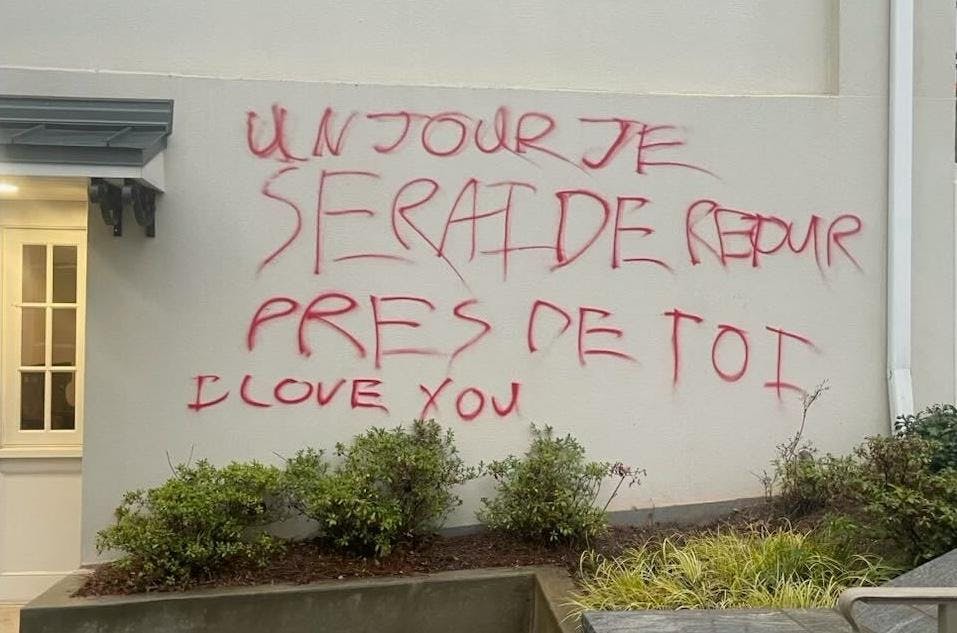 UN JOUR JE
SERAI DE REDUR
PRES DE TOI
I LOVE YOU